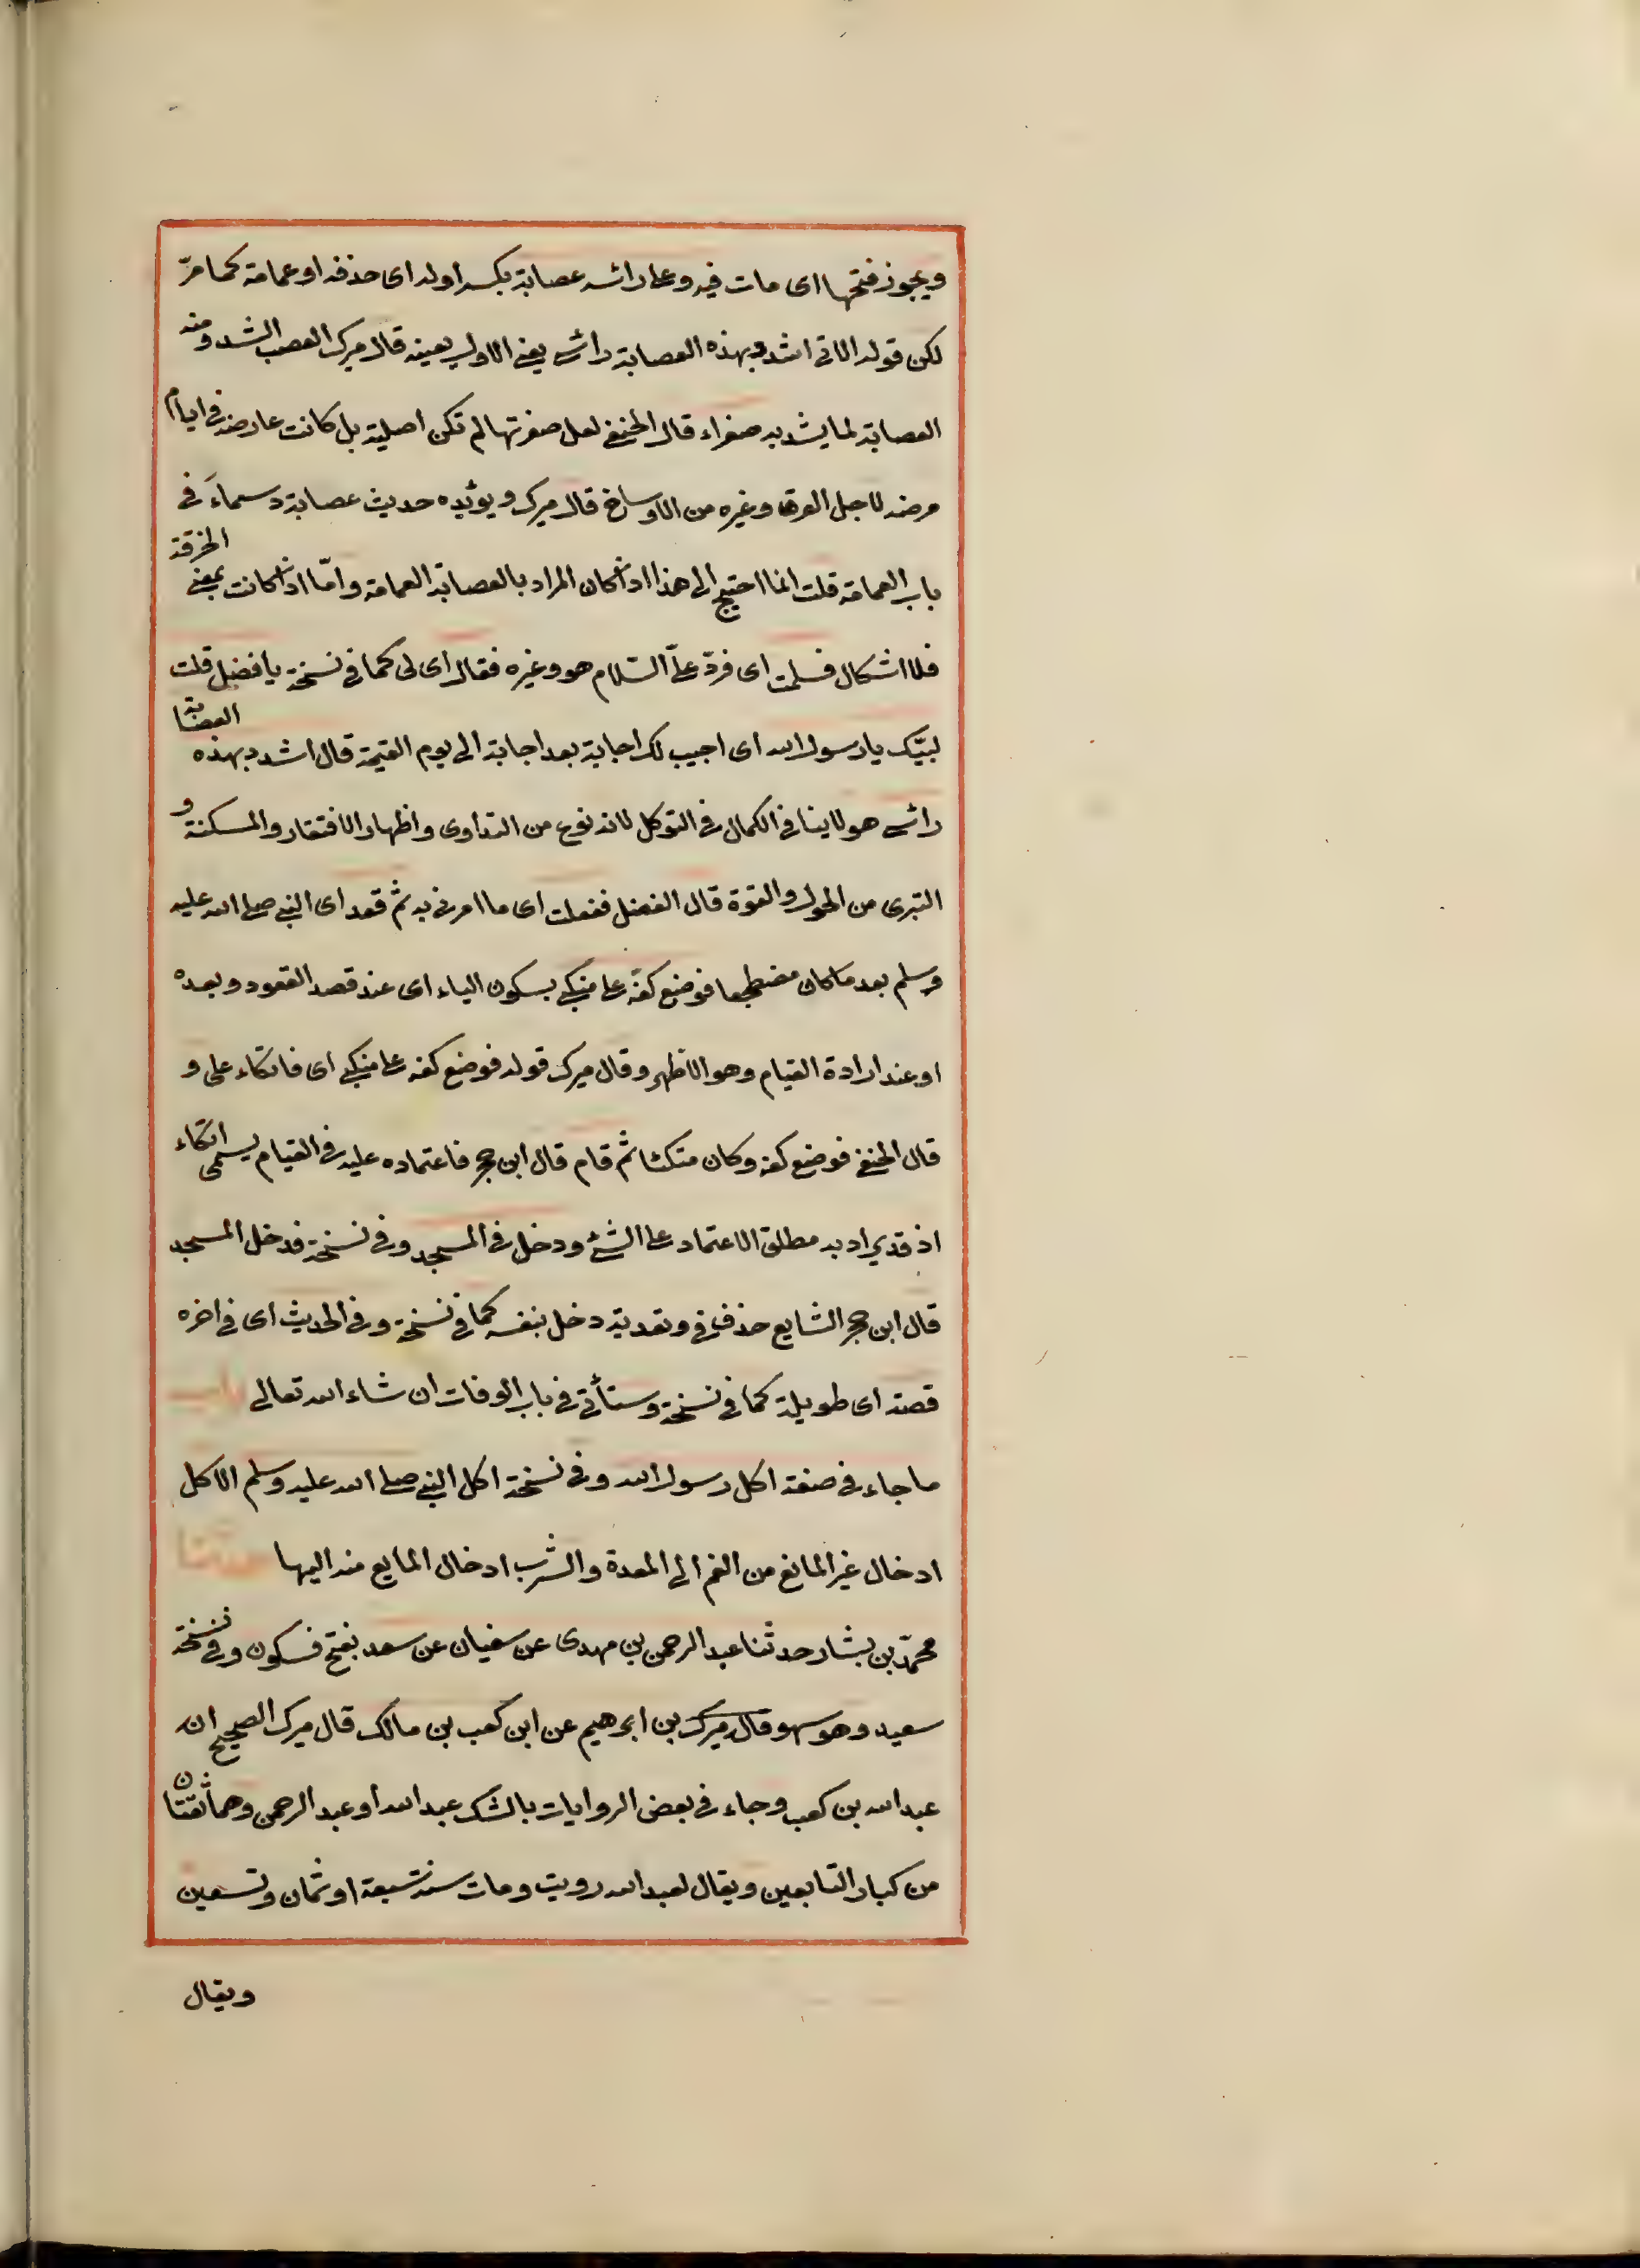 ويجوز فتحها اى مات فيه وعلى رائسه عصابة بكسر اوله اى حذفه او عمامة كما مرّ
لكن قوله الاتى اشدد بهذه العصابة رائسى يعنى الاول بعينه قال ميرك العصب الشد ومنه
العصابة لما يشد به صفراء قال الحنفى لعل صفرتها لم تكن اصلية بل كانت عارضة فى ايام
مرضه لاجل العرق وغيره من الاوساخ قال ميرك ويؤيده حديث عصابة دسماءَ فى
باب العمامة قلت انما احتيج الى هذا اذا كان المراد بالعصابة العمامة وامّا اذا كانت بمعنى الخرقة
فلا اشكال فسلمت اى فردّ علىّ السّلام هو وغيره فقال اى لى كما فى نسخة يا فضل قلت
لبيّك يا رسول الله اى اجيب لك اجابة بعد اجابة الى يوم القيمة قال اشدد بهذه العصابة
رائسى هو لا ينافى الكمال فى التوكل لانه نوع من التداوى واظهار الافتقار والمسكنة و
التبرى من الحول والقوة قال الفضل ففعلت اى ما امرنى به ثم قعد اى النبى صلى الله عليه
وسلم بعد ما كان مضطجعا فوضع كفّه على منكبى بسكون الياء اى عند قصد القعود وبعده
او عند ارادة القيام وهو الاظهر وقال ميرك قوله فوضع كفه على منكبى اى فاتكاء على و
قال الحنفى فوضع كفه وكان متكئا ثم قام قال ابن حجر فاعتماده عليه فى القيام يسمى اتكاء
اذ قد يراد به مطلق الاعتماد على الشئ ودخل فى المسجد وفى نسخة فدخل المسجد
قال ابن حجر الشايع حذف فى وتعدية دخل بنفسه كما فى نسخة وفى الحديث اى فى اخره
قصة اى طويلة كما فى نسخة وستأتى فى باب الوفات ان شاء الله تعالى باب
ما جاء فى صفة اكل رسول الله وفى نسخة اكل النبى صلى الله عليه وسلم الاكل
ادخال غير المائع من الفم الى المعدة والشرب ادخال المايع منه اليها حدثنا
محمّد بن بشار حدثنا عبد الرحمن بن مهدى عن سفيان عن سعد بفتح فسكون وفى نسخة
سعيد وهو سهو وقال ميرك بن ابرهيم عن ابن كعب بن مالك قال ميرك الصحيح انه
عبد الله بن كعب وجاء فى بعض الروايات بالشك عبد الله أو عبد الرحمن وهما ثقتان
من كبار التابعين ويقال لعبد الله رويت ومات سنة سبعة او ثمان وتسعين
ويقال